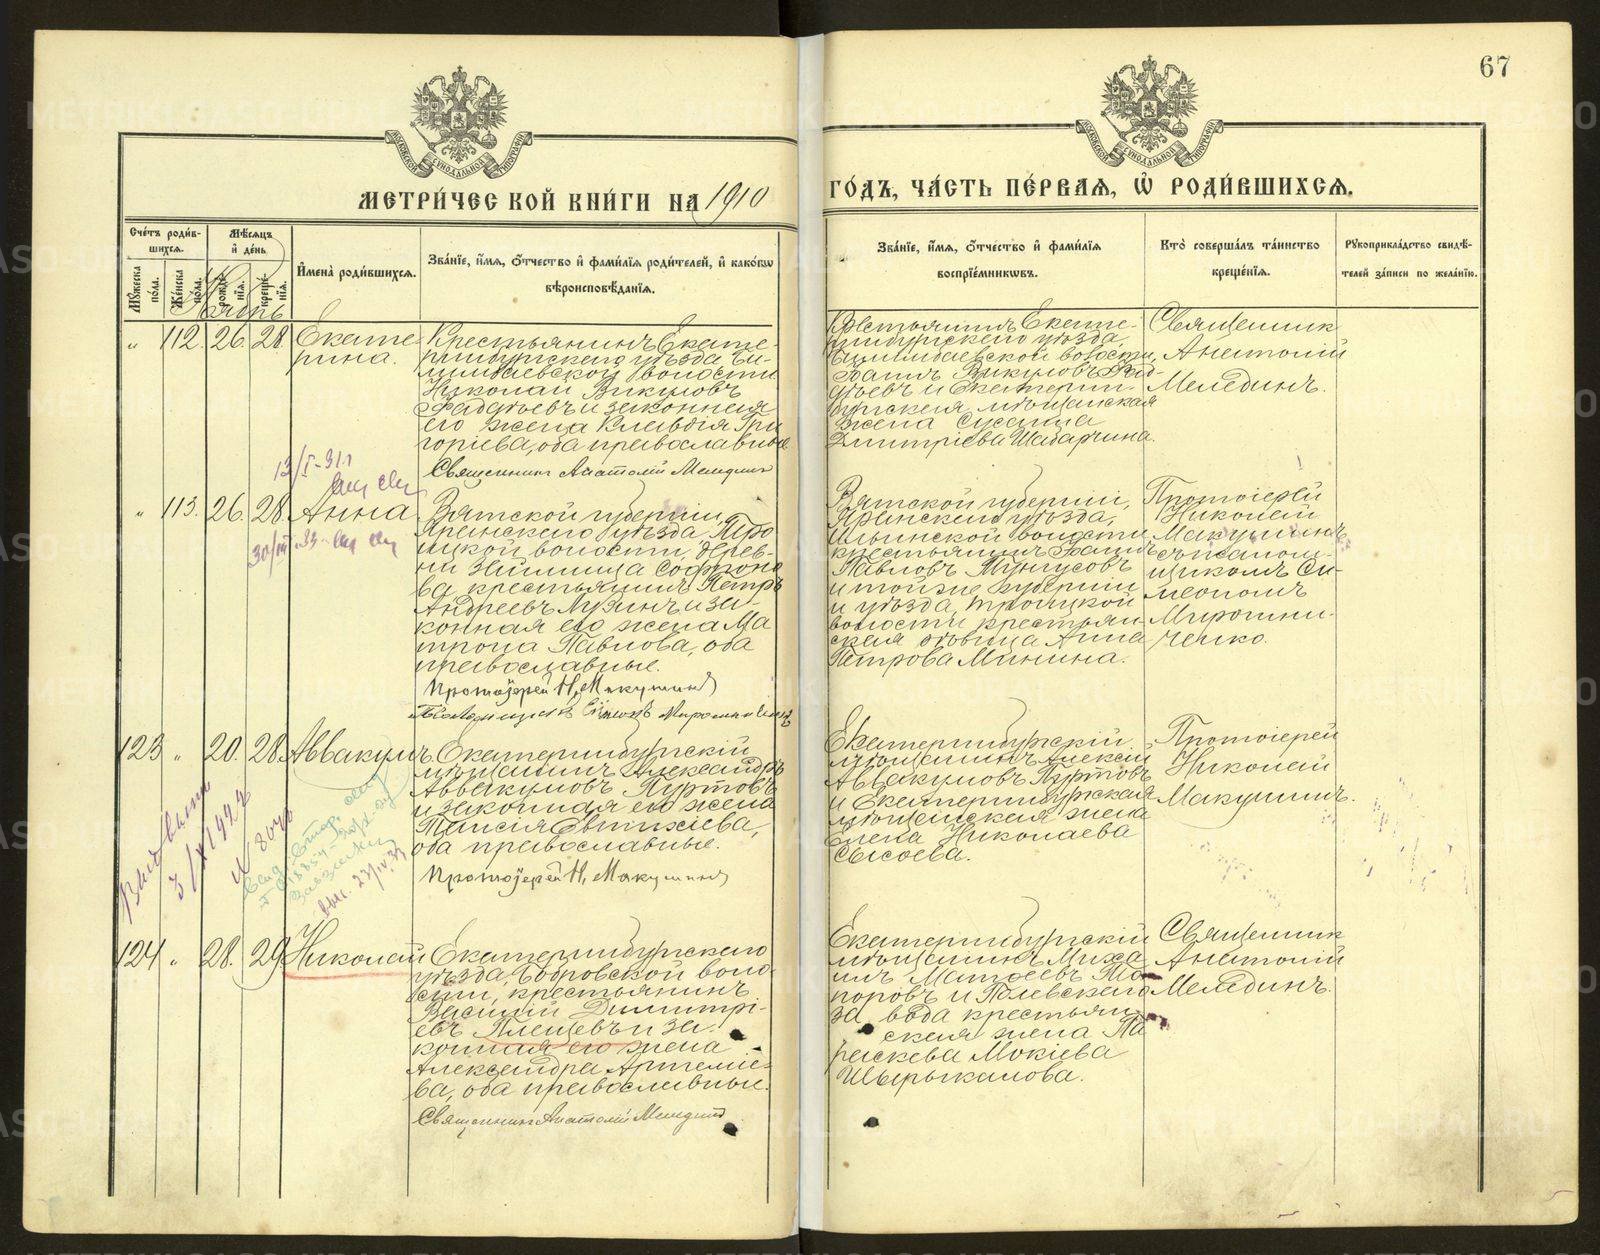 67
МЕТРИ́ЧЕСКОЙ КНИ́ГИ НА 1910
ГО́ДЪ, ЧА́СТЬ ПЕ́РВАѦ, Ѡ҆ РОДИ́ВШИХСѦ.
Сче́тъ роди́в-
шихсѧ.
Мꙋ́жеска
по́ла.
Же́нска
по́ла.
Мѣ́сѧцъ
и҆ де́нь
рожде́-
нїѧ.
креще́-
нїѧ.
И҆мена̀ роди́вшихсѧ.
Зва́нїе, и҆́мѧ, ѻ҆́тчество и҆ фами́лїѧ роди́телей, и҆ како́вѡ
вѣроисповѣ́данїѧ.
Зва́нїе, и҆́мѧ, ѻ҆́тчество и҆ фами́лїѧ
воспрїе́мникѡвъ.
Кто̀ соверша́лъ та́инство
креще́нїѧ.
Рꙋкоприкла́дство свидѣ́-
телей за́писи по жела́нїю.
„ 112. 26. 28.
Екате-
рина.
Крестьянинъ Екате-
ринбургскаго уѣзда, Би-
лимбаевской волости
Николай Викуловъ
Фадѣевъ и законная
его жена Клавдія Гри
горіева, оба православные
Священникъ Анатолій Меледин
Крестьянинъ Екате-
ринбургскаго уѣзда,
Билимбаевской волости,
Викуловъ Фад-
ѣевъ и Екатерин-
бургская мѣщанская
жена Сусанна
Дмитріева Шабарчина.
Священник
Анатолій
Мелединъ.
13/I-31
„ 113. 26. 28.
Анна
Вятской губерніи,
Яранскаго уѣзда, Тро
ицкой волости, дерев-
ни
крестьянинъ Петръ
Андреевъ Лузинъ и за-
конная его жена Ма
трона Павлова, оба
православные.
Протоіерей Н. Макушинъ
Псаломщикъ Симеонъ Мирошниченко
Вятской губерніи,
Яранскаго уѣзда,
Ильинской волости
крестьянинъ
Павловъ
и той же губерніи
и уѣзда, Троицкой
волости крестьян-
ская дѣвица Анна
Петрова Минина.
Протоіерей
Николай
Макушинъ
съ псалом-
щикомъ Си-
меономъ
Мирошни-
ченко.
123 „ 20. 28.
Аввакумъ
Екатеринбургскій
мѣщанинъ Александръ
Аввакумовъ Пуртовъ
и законная его жена
Таисія Евгеніева,
оба православные.
Протоіерей Н. Макушинъ
Екатеринбургскій
мѣщанинъ Алексѣй
Аввакумовъ Пуртовъ
и Екатеринбургская
мѣщанская жена
Елена Николаева
Сысоева.
Протоіерей
Николай
Макушинъ.
124 „ 28. 29.
Николай
Екатеринбургскаго
уѣзда, Бобровской воло-
сти, крестьянинъ
Василій Димитрі-
евъ Плещевъ и за-
конная его жена
Александра Артеміе-
ва, оба православные.
Священникъ Анатолій Меледин
Екатеринбургскій
мѣщанинъ Миха
илъ Матѳеевъ То
поровъ и Полевскаго
за вода крестьян
ская жена Па
раскева Мокіева
Шырыкалова.
Священник
Анатолій
Мелединъ.
METRIKI.GASO-URAL.RU